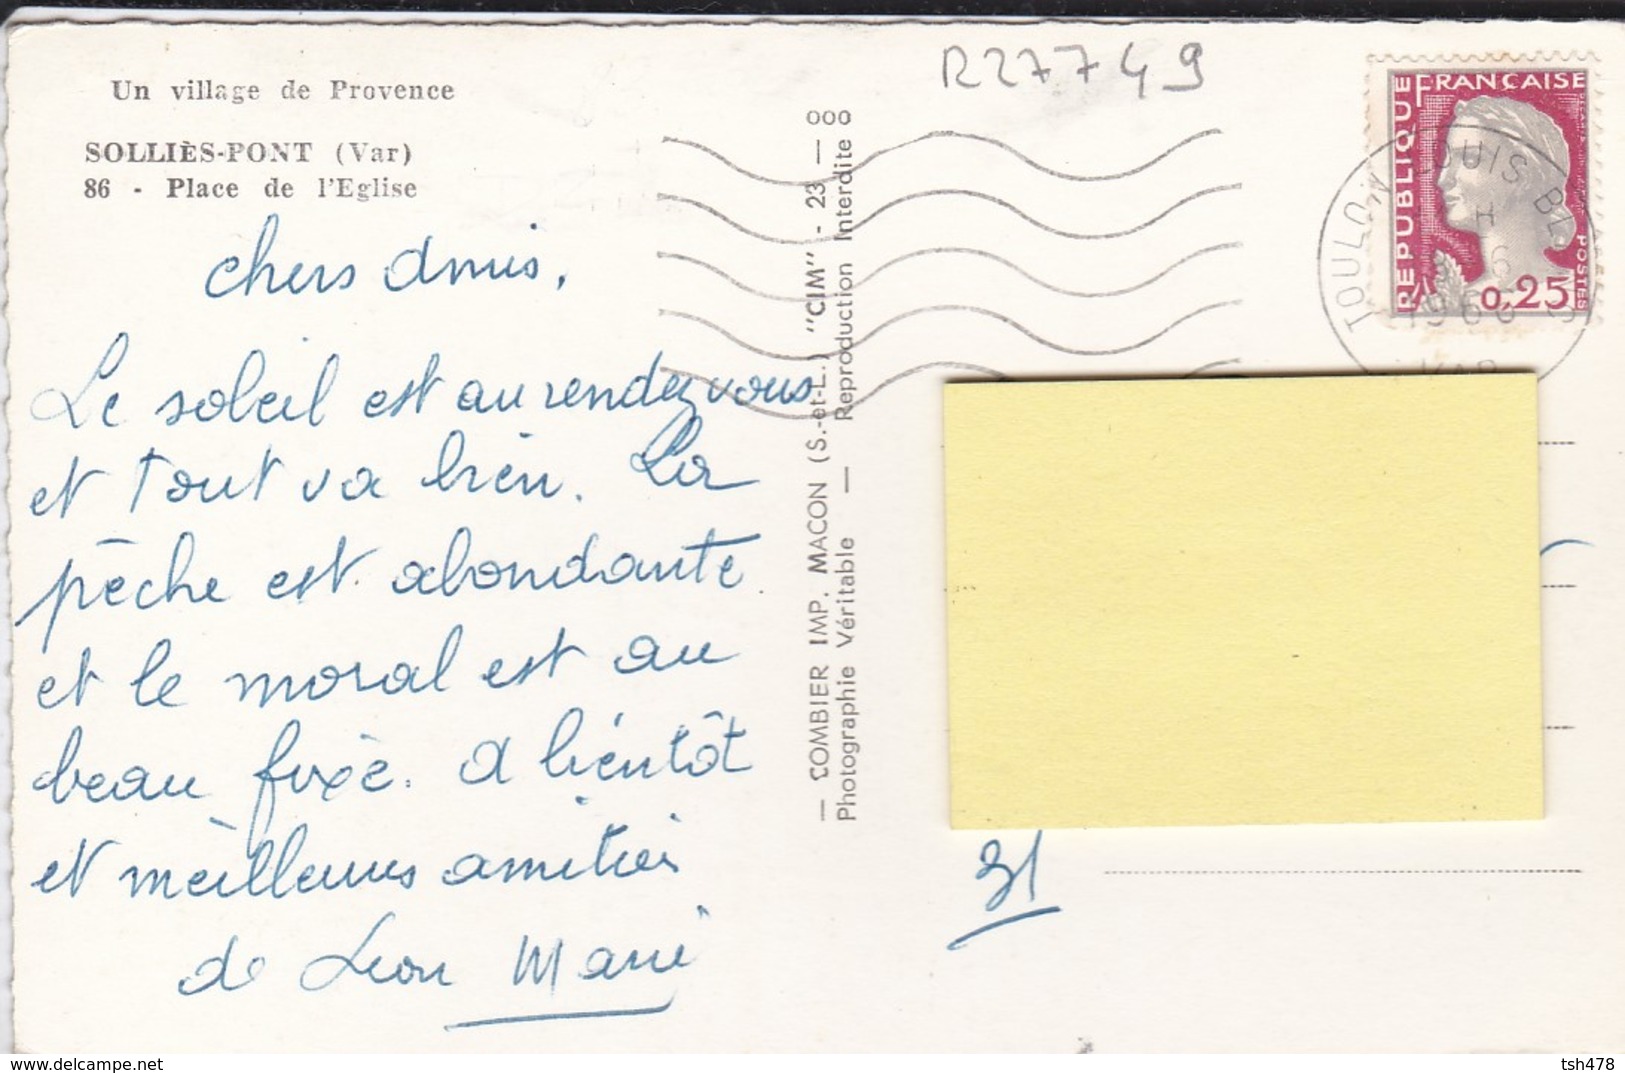 Un village de Provence
SOLLIÈS-PONT (Var)
86 - Place de l'Eglise
chers amis,
Le soleil est au rendez vous
et tout va bien. La
pêche est abondante
et le moral est au
beau fixe. a bientôt
et meilleures amitiés
de Léon Marie
— COMBIER IMP. MACON (S.-et-L.) "CIM" - 23 — ooo
Photographie Véritable — Reproduction Interdite
R27749
RÉPUBLIQUE
FRANÇAISE
POSTES
0,25
TOULON
VAR
31
www.delcampe.net
tsh478